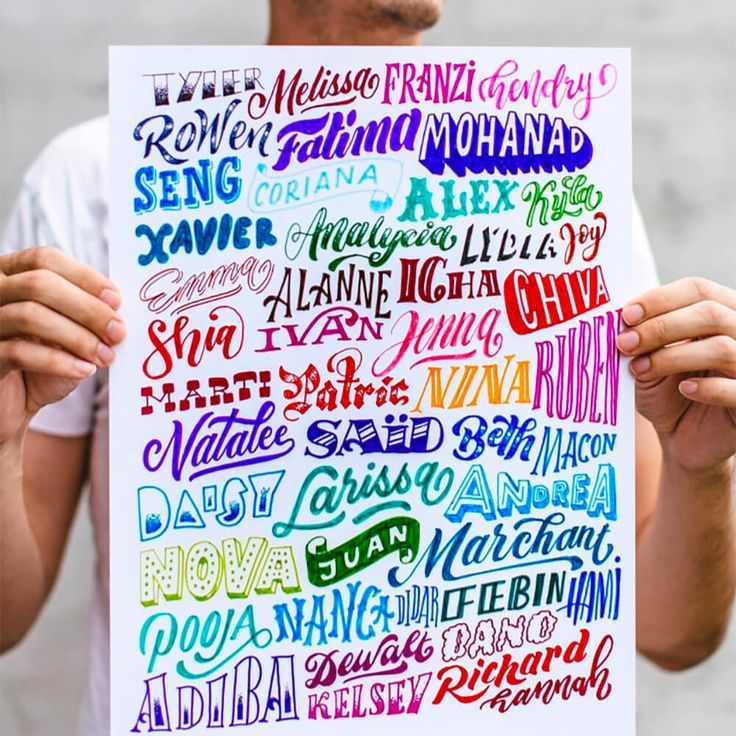 TYLER Melissa FRANZI Chendry
RoWen Fatima MOHANAD
SENG CORIANA ALEX Kyla
XAVIER Analycia LYDIA Joy
Emma ALANNE ICHA CHIVA
Shia IVAN Jenna RUBEN
MARTI Patric NINA
Natalee SAÏD Beth MACON
DAISY Larissa ANDREA
NOVA JUAN Marchant
POOJA NANCA DIDAR CFEBIN HAMI
ADIBA Dewalt DANO
KELSEY Richard hannah